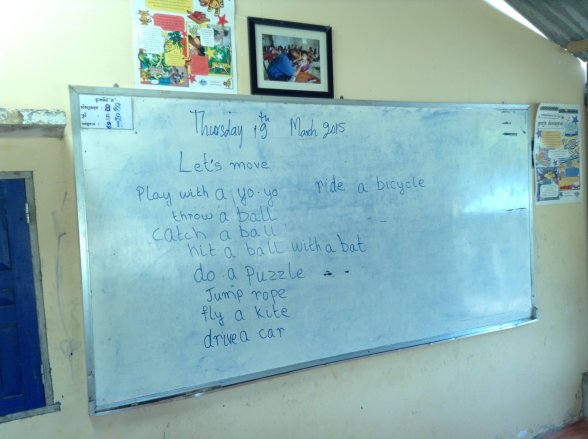 Thursday 19th March 2015
Let's move
Play with a yo-yo
ride a bicycle
throw a ball
catch a ball
hit a ball with a bat
do a puzzle
Jump rope
fly a kite
drive a car